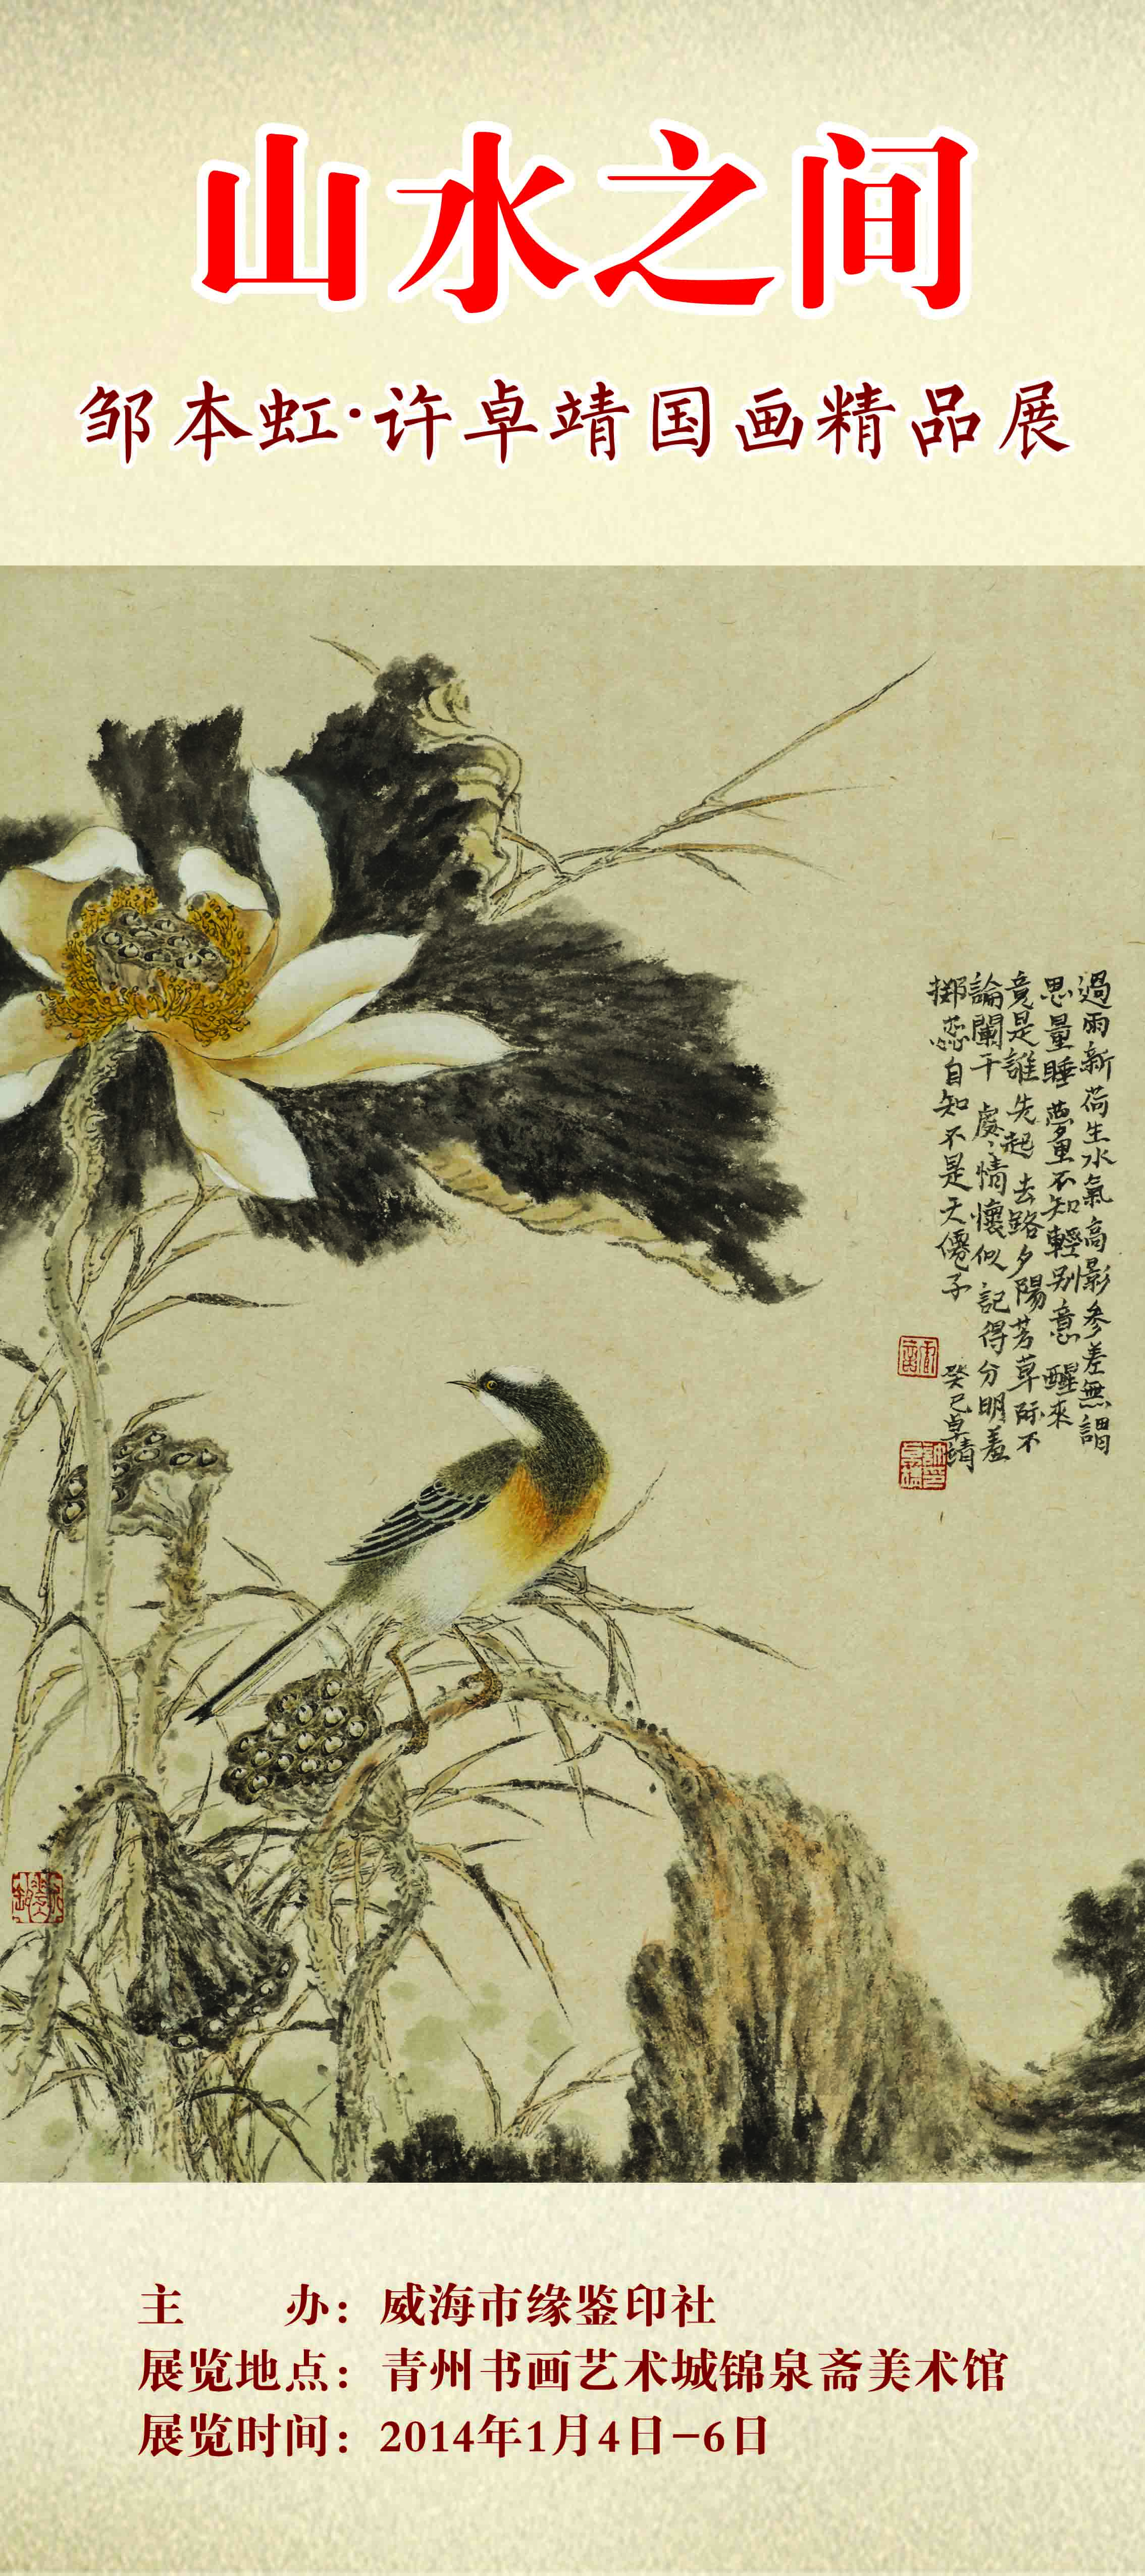 山水之间
邹本虹·许卓靖国画精品展
過雨新荷生水氣高影參差無謂
思量睡夢里不知輕别意醒來
竟是誰先起去路夕陽芳草际不
論闌干處〻情懷似記得分明羞
擲蕊自知不是天僊子
癸巳卓靖
主　　办：威海市缘鉴印社
展览地点：青州书画艺术城锦泉斋美术馆
展览时间：2014年1月4日-6日